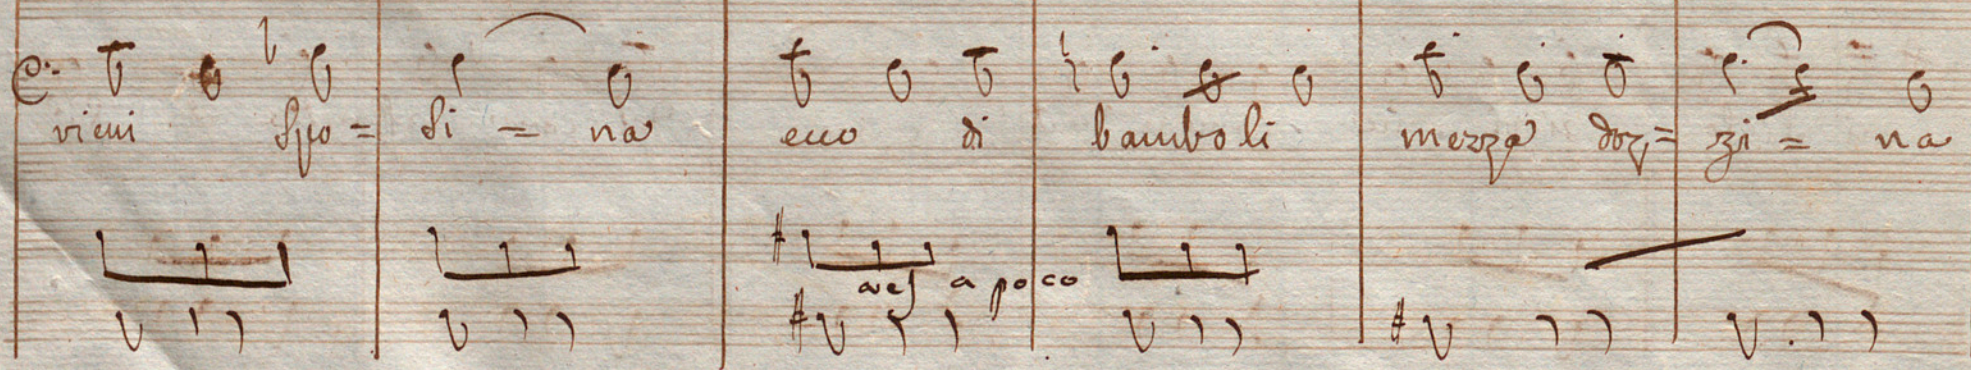 vieni Spo= si = na ecco di bamboli mezza doz= zi = na
a poco